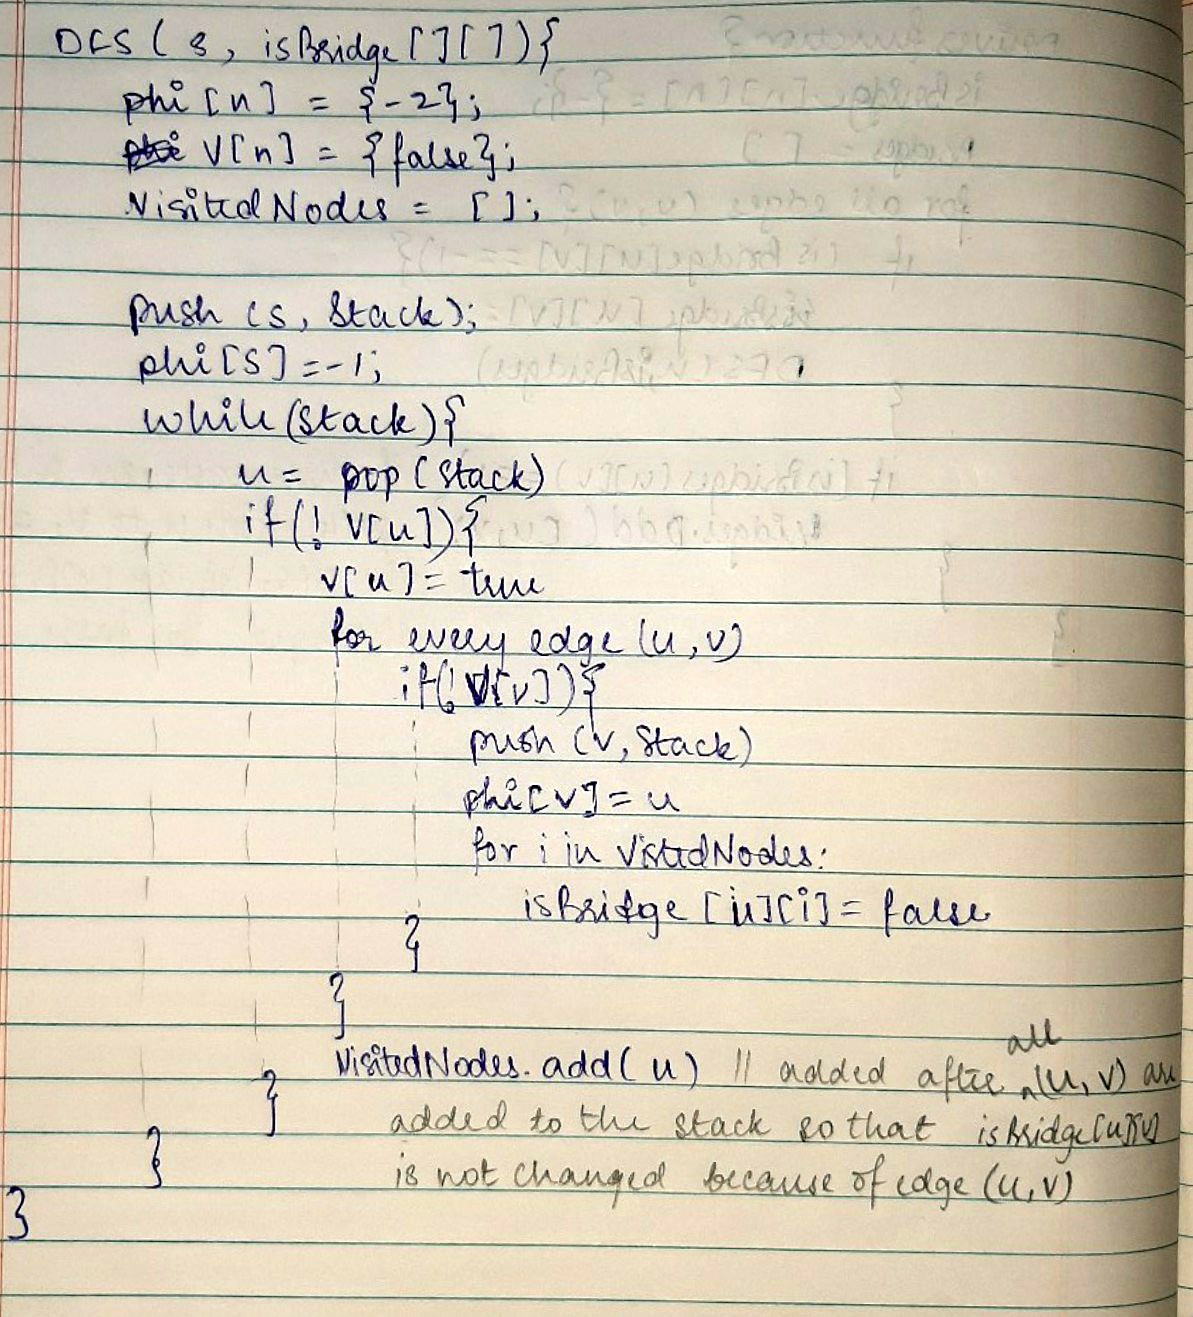 DFS ( s, isBridge [ ] [ ] ) {
phi [n] = {-2};
V[n] = {false};
Visited Nodes = [ ];
push (s, Stack);
phi [S] = -1;
while (Stack) {
u = pop (Stack)
if (! V[u]) {
v[u] = true
for every edge (u, v)
if (! V[v]) {
push (v, Stack)
phi [v] = u
for i in VistedNodes:
isBridge [u][i] = false
}
}
VisitedNodes. add( u ) // added after all (u, v) are
}
added to the stack so that isBridge[u][v]
}
is not changed because of edge (u, v)
}